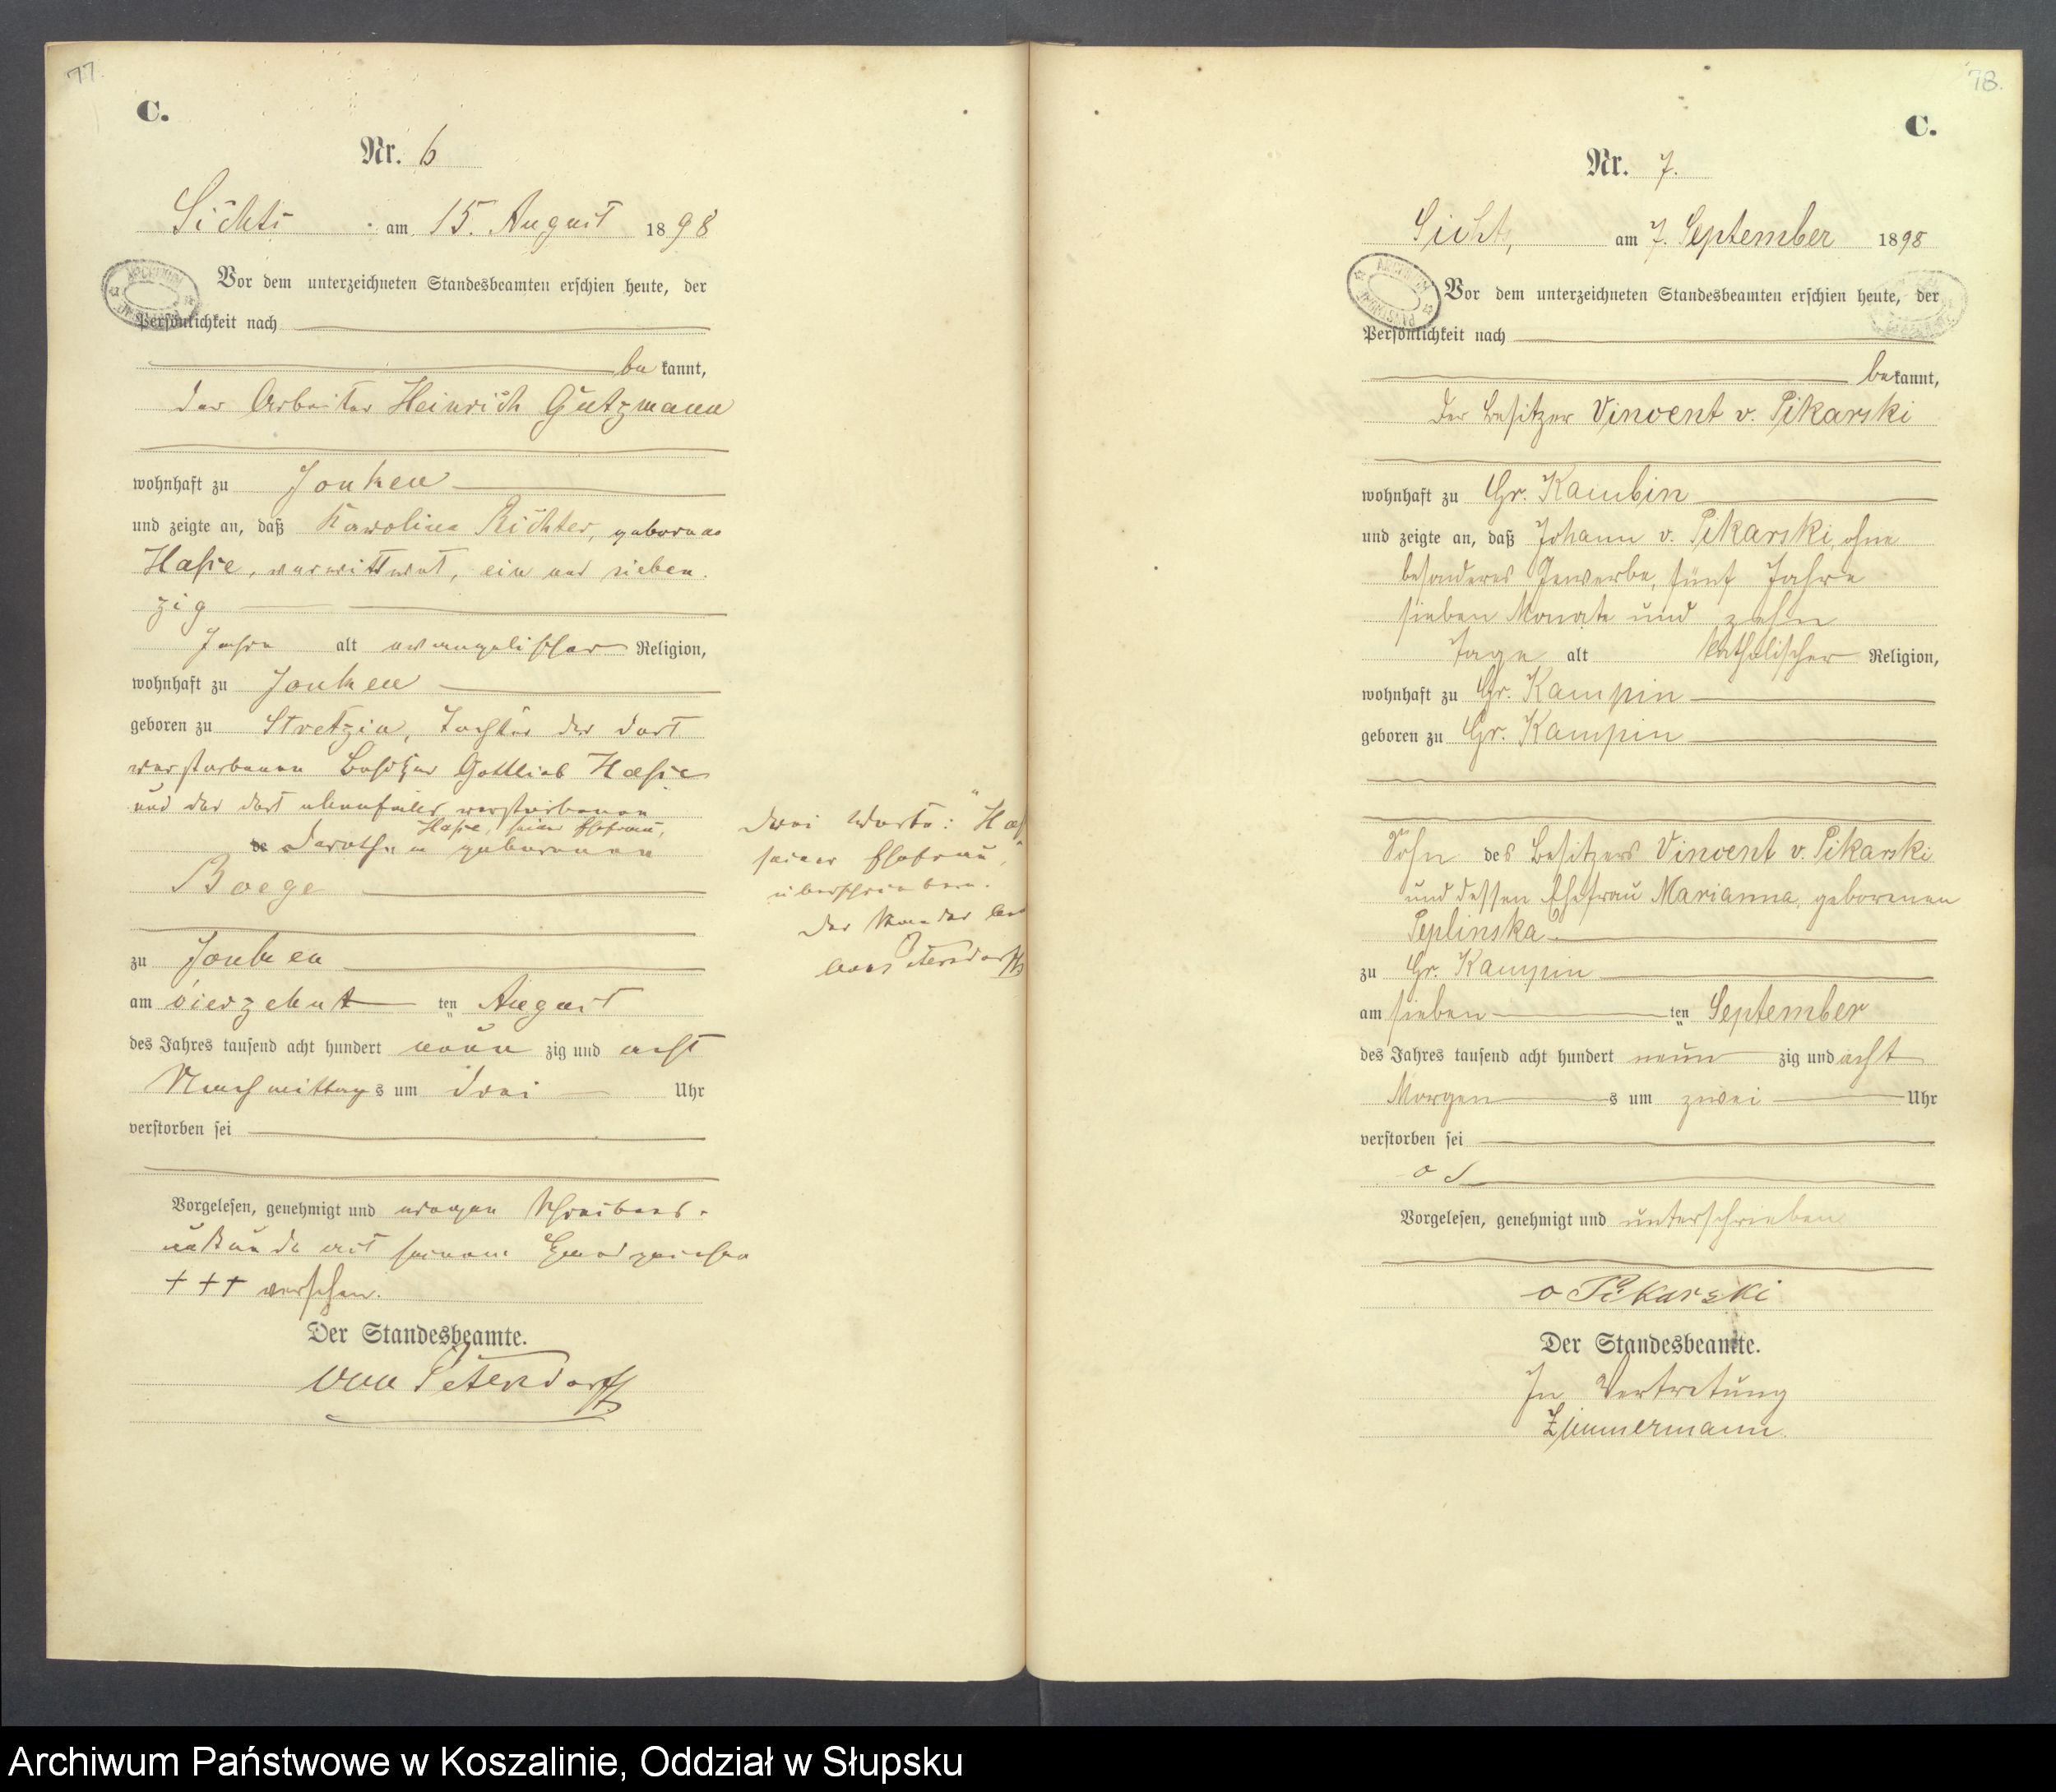 77.
C.
Nr. 6
Sichts am 15. August 1898
Vor dem unterzeichneten Standesbeamten erschien heute, der
Persönlichkeit nach
bekannt,
der Arbeiter Heinrich Gutzmann
wohnhaft zu Jonken
und zeigte an, daß Karoline Richter, geborene
Hasse, verwittwet, ein und sieben
zig
Jahre alt evangelischer Religion,
wohnhaft zu Jonken
geboren zu Stretzin, Tochter der dort
verstorbenen Besitzer Gottlieb Hasse
und der dort ebenfalls verstorbenen
Hasse, seiner Ehefrau,
Dorothea geborenen
Boege
zu Jonken
am vierzehnt ten August
des Jahres tausend acht hundert neun zig und acht
Nachmittags um drei Uhr
verstorben sei
Vorgelesen, genehmigt und wegen Schreibens-
unkunde mit seinem Handzeichen
+++ versehen.
Der Standesbeamte.
von Petersdorff
Drei Worte: "Has
seiner Ehefrau,"
überschrieben.
Der Standesbeam
von Petersdorff
78.
C.
Nr. 7.
Sicht, am 7. September 1898
ARCHIWUM
Vor dem unterzeichneten Standesbeamten erschien heute, der
Persönlichkeit nach
bekannt,
der Besitzer Vincent v. Pikarski
wohnhaft zu Gr. Kambin
und zeigte an, daß Johann v. Pikarski, ohne
besonderes Gewerbe, fünf Jahre
sieben Monate und zehn
Tage alt katholischer Religion,
wohnhaft zu Gr. Kampin
geboren zu Gr. Kampin
Sohn des Besitzers Vincent v. Pikarski
und dessen Ehefrau Marianna, geborenen
Peplinska
zu Gr. Kampin
am sieben ten September
des Jahres tausend acht hundert neun zig und acht
Morgens um zwei Uhr
verstorben sei
Vorgelesen, genehmigt und unterschrieben
v Pikarski
Der Standesbeamte.
In Vertretung
Zimmermann.
Archiwum Państwowe w Koszalinie, Oddział w Słupsku